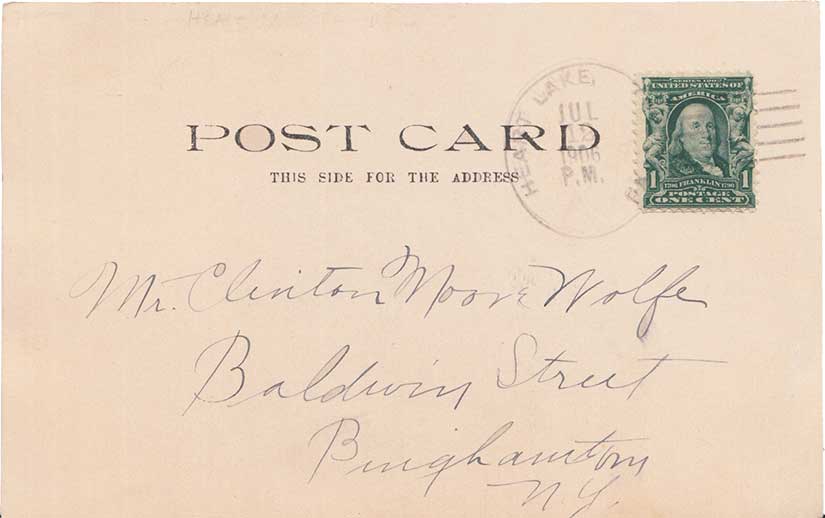 HEART LAKE,
JUL
1906
P.M.
PA
SERIES 1902
UNITED STATES OF
AMERICA
1706 FRANKLIN 1790
1 POSTAGE 1
ONE CENT
POST CARD
THIS SIDE FOR THE ADDRESS
Mr. Clinton Moore Wolfe
Baldwin Street
Binghamton
N.Y.